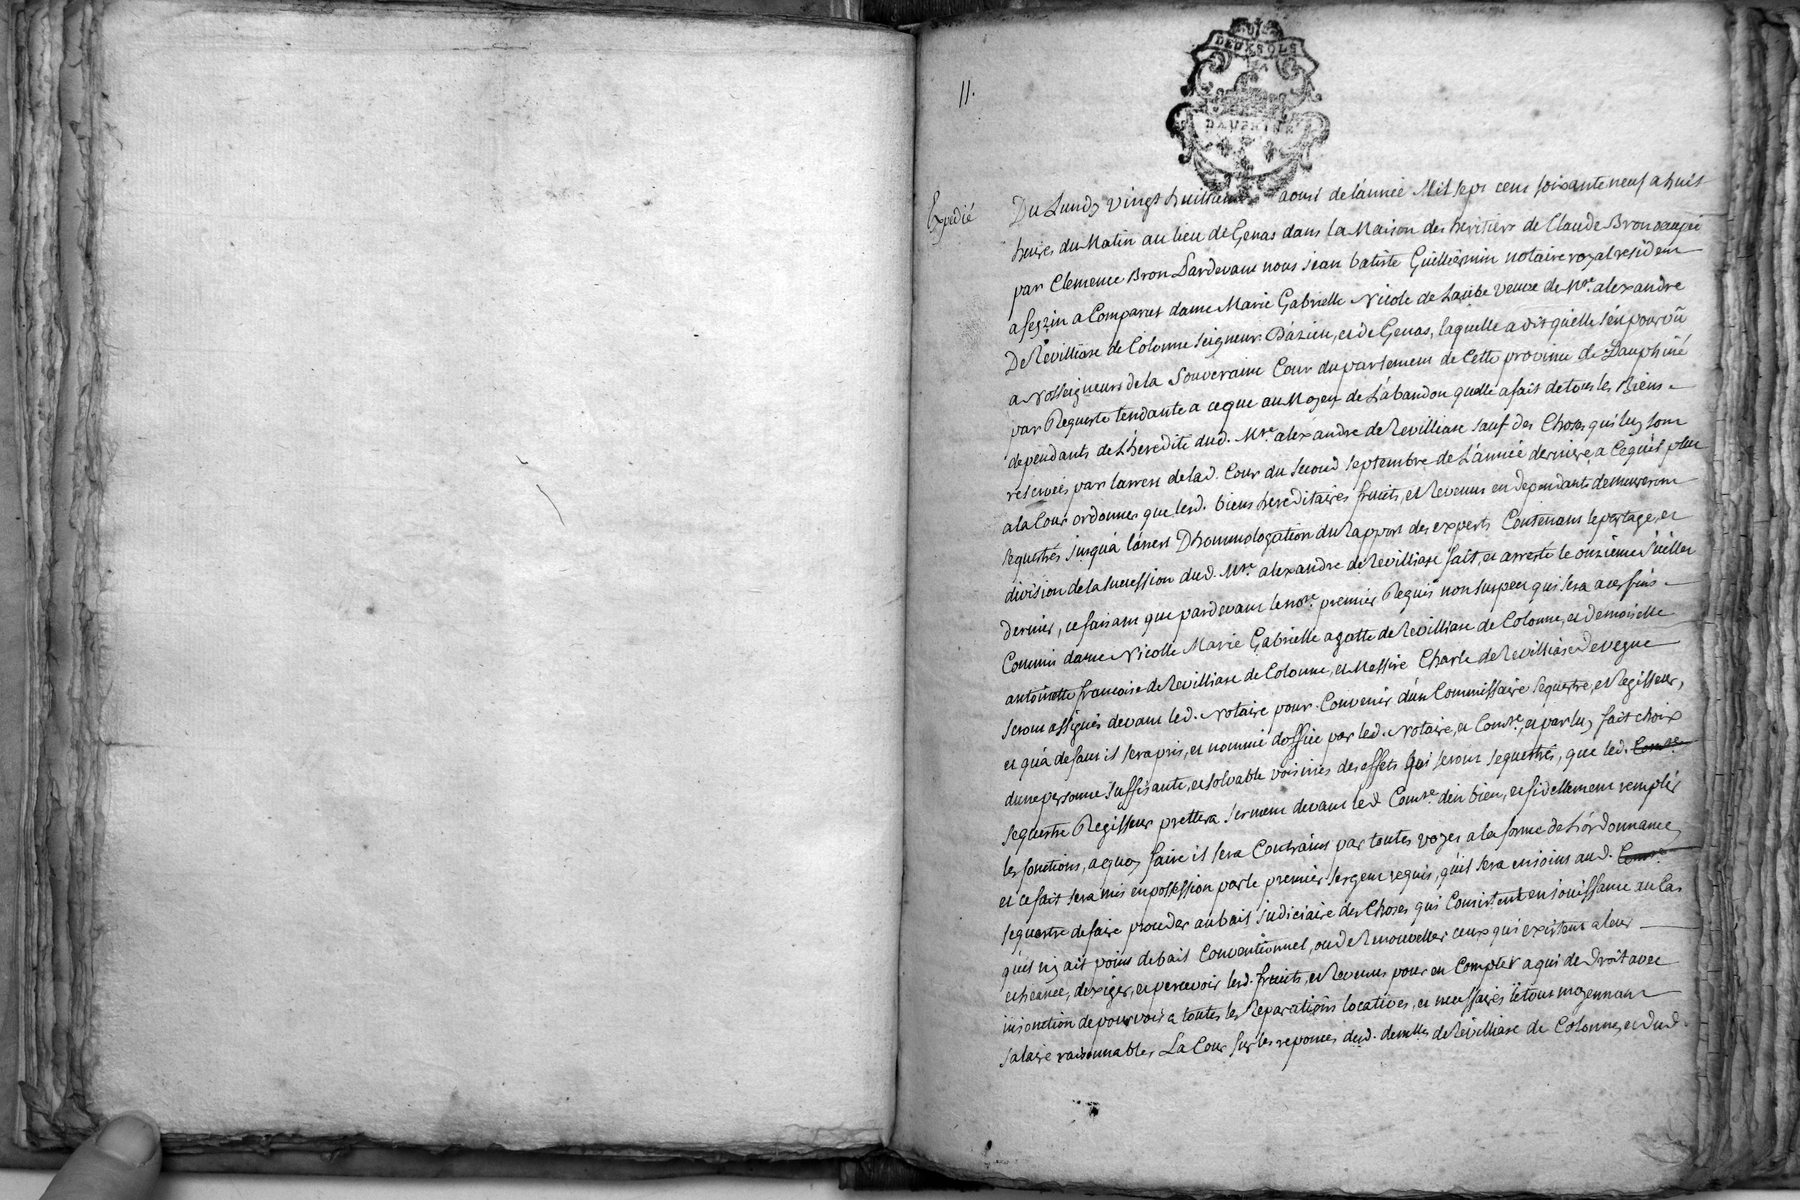 11.
DEUX SOLS
DAUPHINE
Expedié
Du Lundy vingt huitieme aoust de lánnée Mil sept cent soixante neuf a huit
heures du Matin au lieu de Genas dans la Maison des heritiers de Claude Bron occupée
par Clemence Bron Pardevant nous jean batiste Guilliermin notaire royal resident
a feyzin a Comparut dame Marie Gabrielle Nicole de Laube veuve de Mre. alexandre
De Revilliase de Colonne seigneur D'azieu, et de Genas, laquelle a dit qu'elle s'en pourvû
a Nosseigneurs de la Souveraine Cour du parlement de Cette province de Dauphiné
par Requeste tendante a ce que au Moyen de L'abandon quelle a fait de tous les Biens
dependants de L'heredité dud. Mre. alexandre de Revilliase sauf des Choses qui luy sont
reservées par larrest de lad. Cour du second septembre de L'année derniere, a Cequ'il plut
a la Cour ordonner que lesd. biens hereditaires fruits, et Revenus en dependants demeureront
sequestrés jusqu'a lárrest D'hommologation du Rapport des experts Contenant le partage, et
division de la succession dud. Mre. alexandre de Revilliase fait, et arresté le onzieme Juillet
dernier, ce faisant que pardevant le notre. premier Requis non suspect qui sera a ces fins
Commis dame Nicolle Marie Gabrielle agatte de Revilliase de Colonne, et demoiselle
antoinette francoise de Revilliase de Colonne, et Messire Charle de Revilliase devegue
seront assignés devant led. Notaire pour Convenir d'un Commissaire sequestre, et Regisseur,
et qu'á defaut il sera pris, et nommé d'office par led. Notaire, et Comre. et par luy fait choix
dune personne suffisante, et solvable voisines des effets qui seront sequestrés, que led. Comre.
sequestre Regisseur prettera serment devant led Comre. d'en bien, et fidellement remplir
les fonctions, a quoy faire il sera Contraint par toutes voyes a la forme de L'órdonnance,
et ce fait sera mis en possession par le premier sergent requis, qu'il sera enjoint aud. Comre.
sequestre de faire proceder au bail judiciaire des Choses qui Consistent en jouissance au Cas
qu'il n'y ait point de bail Conventionnel, ou de Renouveller ceux qui existent a leur
echeance, d'exiger, et percevoir lesd. fruits, et Revenus pour en Compter a qui de Droit avec
injonction de pourvoir a toutes les Reparations locatives, et necessaires le tout moyennant
salaire raisonnables, La Cour sur les reponces desd. demlles de Revilliase de Colonne, et dud.